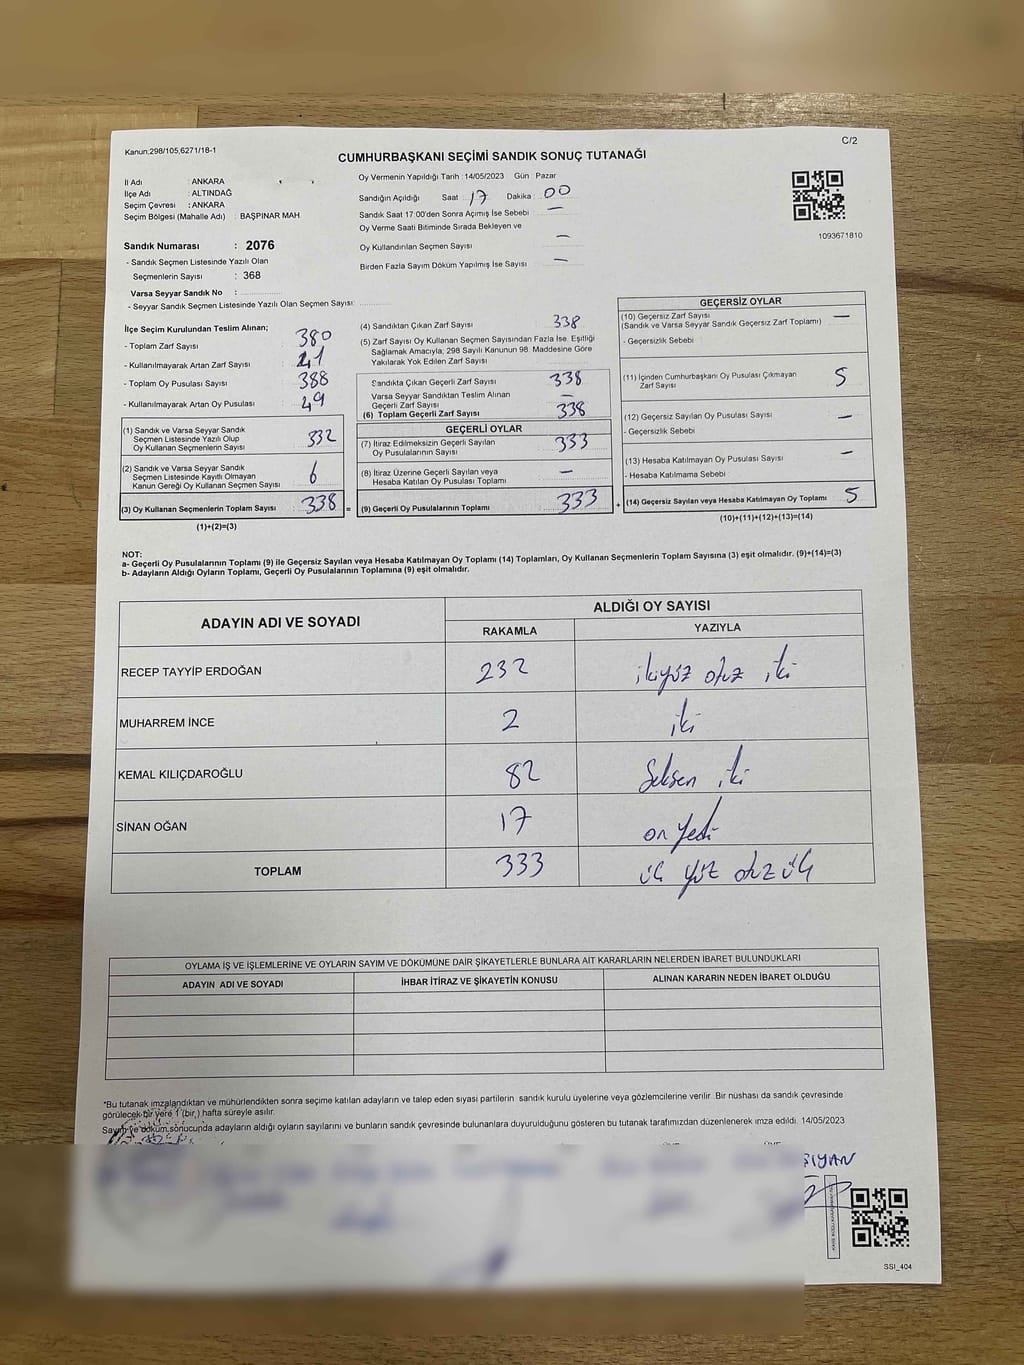 Kanun;298/105,6271/18-1
C/2
CUMHURBAŞKANI SEÇİMİ SANDIK SONUÇ TUTANAĞI
İl Adı : ANKARA
İlçe Adı : ALTINDAĞ
Seçim Çevresi : ANKARA
Seçim Bölgesi (Mahalle Adı) : BAŞPINAR MAH
Sandık Numarası : 2076
- Sandık Seçmen Listesinde Yazılı Olan
Seçmenlerin Sayısı : 368
Varsa Seyyar Sandık No :
- Seyyar Sandık Seçmen Listesinde Yazılı Olan Seçmen Sayısı:
Oy Vermenin Yapıldığı Tarih :14/05/2023 Gün Pazar
Sandığın Açıldığı Saat : 17 Dakika : 00
Sandık Saat 17:00'den Sonra Açımış İse Sebebi —
Oy Verme Saati Bitiminde Sırada Bekleyen ve
Oy Kullandırılan Seçmen Sayısı —
Birden Fazla Sayım Döküm Yapılmış İse Sayısı —
1093671810
İlçe Seçim Kurulundan Teslim Alınan;
- Toplam Zarf Sayısı 380
- Kullanılmayarak Artan Zarf Sayısı 41
- Toplam Oy Pusulası Sayısı 388
- Kullanılmayarak Artan Oy Pusulası 49
(1) Sandık ve Varsa Seyyar Sandık
Seçmen Listesinde Yazılı Olup
Oy Kullanan Seçmenlerin Sayısı 332
(2) Sandık ve Varsa Seyyar Sandık
Seçmen Listesinde Kayıtlı Olmayan
Kanun Gereği Oy Kullanan Seçmen Sayısı 6
(3) Oy Kullanan Seçmenlerin Toplam Sayısı 338 =
(1)+(2)=(3)
(4) Sandıktan Çıkan Zarf Sayısı 338
(5) Zarf Sayısı Oy Kullanan Seçmen Sayısından Fazla İse, Eşitliği
Sağlamak Amacıyla; 298 Sayılı Kanunun 98. Maddesine Göre
Yakılarak Yok Edilen Zarf Sayısı
Sandıkta Çıkan Geçerli Zarf Sayısı 338
Varsa Seyyar Sandıktan Teslim Alınan
Geçerli Zarf Sayısı —
(6) Toplam Geçerli Zarf Sayısı 338
GEÇERLİ OYLAR
(7) İtiraz Edilmeksizin Geçerli Sayılan
Oy Pusulalarının Sayısı 333
(8) İtiraz Üzerine Geçerli Sayılan veya
Hesaba Katılan Oy Pusulası Toplamı —
(9) Geçerli Oy Pusulalarının Toplamı 333 +
GEÇERSİZ OYLAR
(10) Geçersiz Zarf Sayısı —
(Sandık ve Varsa Seyyar Sandık Geçersiz Zarf Toplamı)
- Geçersizlik Sebebi
(11) İçinden Cumhurbaşkanı Oy Pusulası Çıkmayan
Zarf Sayısı 5
(12) Geçersiz Sayılan Oy Pusulası Sayısı —
- Geçersizlik Sebebi
(13) Hesaba Katılmayan Oy Pusulası Sayısı —
- Hesaba Katılmama Sebebi
(14) Geçersiz Sayılan veya Hesaba Katılmayan Oy Toplamı 5
(10)+(11)+(12)+(13)=(14)
NOT:
a- Geçerli Oy Pusulalarının Toplamı (9) ile Geçersiz Sayılan veya Hesaba Katılmayan Oy Toplamı (14) Toplamları, Oy Kullanan Seçmenlerin Toplam Sayısına (3) eşit olmalıdır. (9)+(14)=(3)
b- Adayların Aldığı Oyların Toplamı, Geçerli Oy Pusulalarının Toplamına (9) eşit olmalıdır.
ADAYIN ADI VE SOYADI ALDIĞI OY SAYISI
RAKAMLA YAZIYLA
RECEP TAYYİP ERDOĞAN 232 ikiyüz otuz iki
MUHARREM İNCE 2 iki
KEMAL KILIÇDAROĞLU 82 Seksen iki
SİNAN OĞAN 17 on yedi
TOPLAM 333 üç yüz otuz üç
OYLAMA İŞ VE İŞLEMLERİNE VE OYLARIN SAYIM VE DÖKÜMÜNE DAİR ŞİKAYETLERLE BUNLARA AİT KARARLARIN NELERDEN İBARET BULUNDUKLARI
ADAYIN ADI VE SOYADI İHBAR İTİRAZ VE ŞİKAYETİN KONUSU ALINAN KARARIN NEDEN İBARET OLDUĞU
*Bu tutanak imzalandıktan ve mühürlendikten sonra seçime katılan adayların ve talep eden siyasi partilerin sandık kurulu üyelerine veya gözlemcilerine verilir. Bir nüshası da sandık çevresinde
görülecek bir yere 1 (bir,) hafta süreyle asılır.
Sayım ve döküm sonucunda adayların aldığı oyların sayılarını ve bunların sandık çevresinde bulunanlara duyurulduğunu gösteren bu tutanak tarafımızdan düzenlenerek imza edildi. 14/05/2023
SSI_404